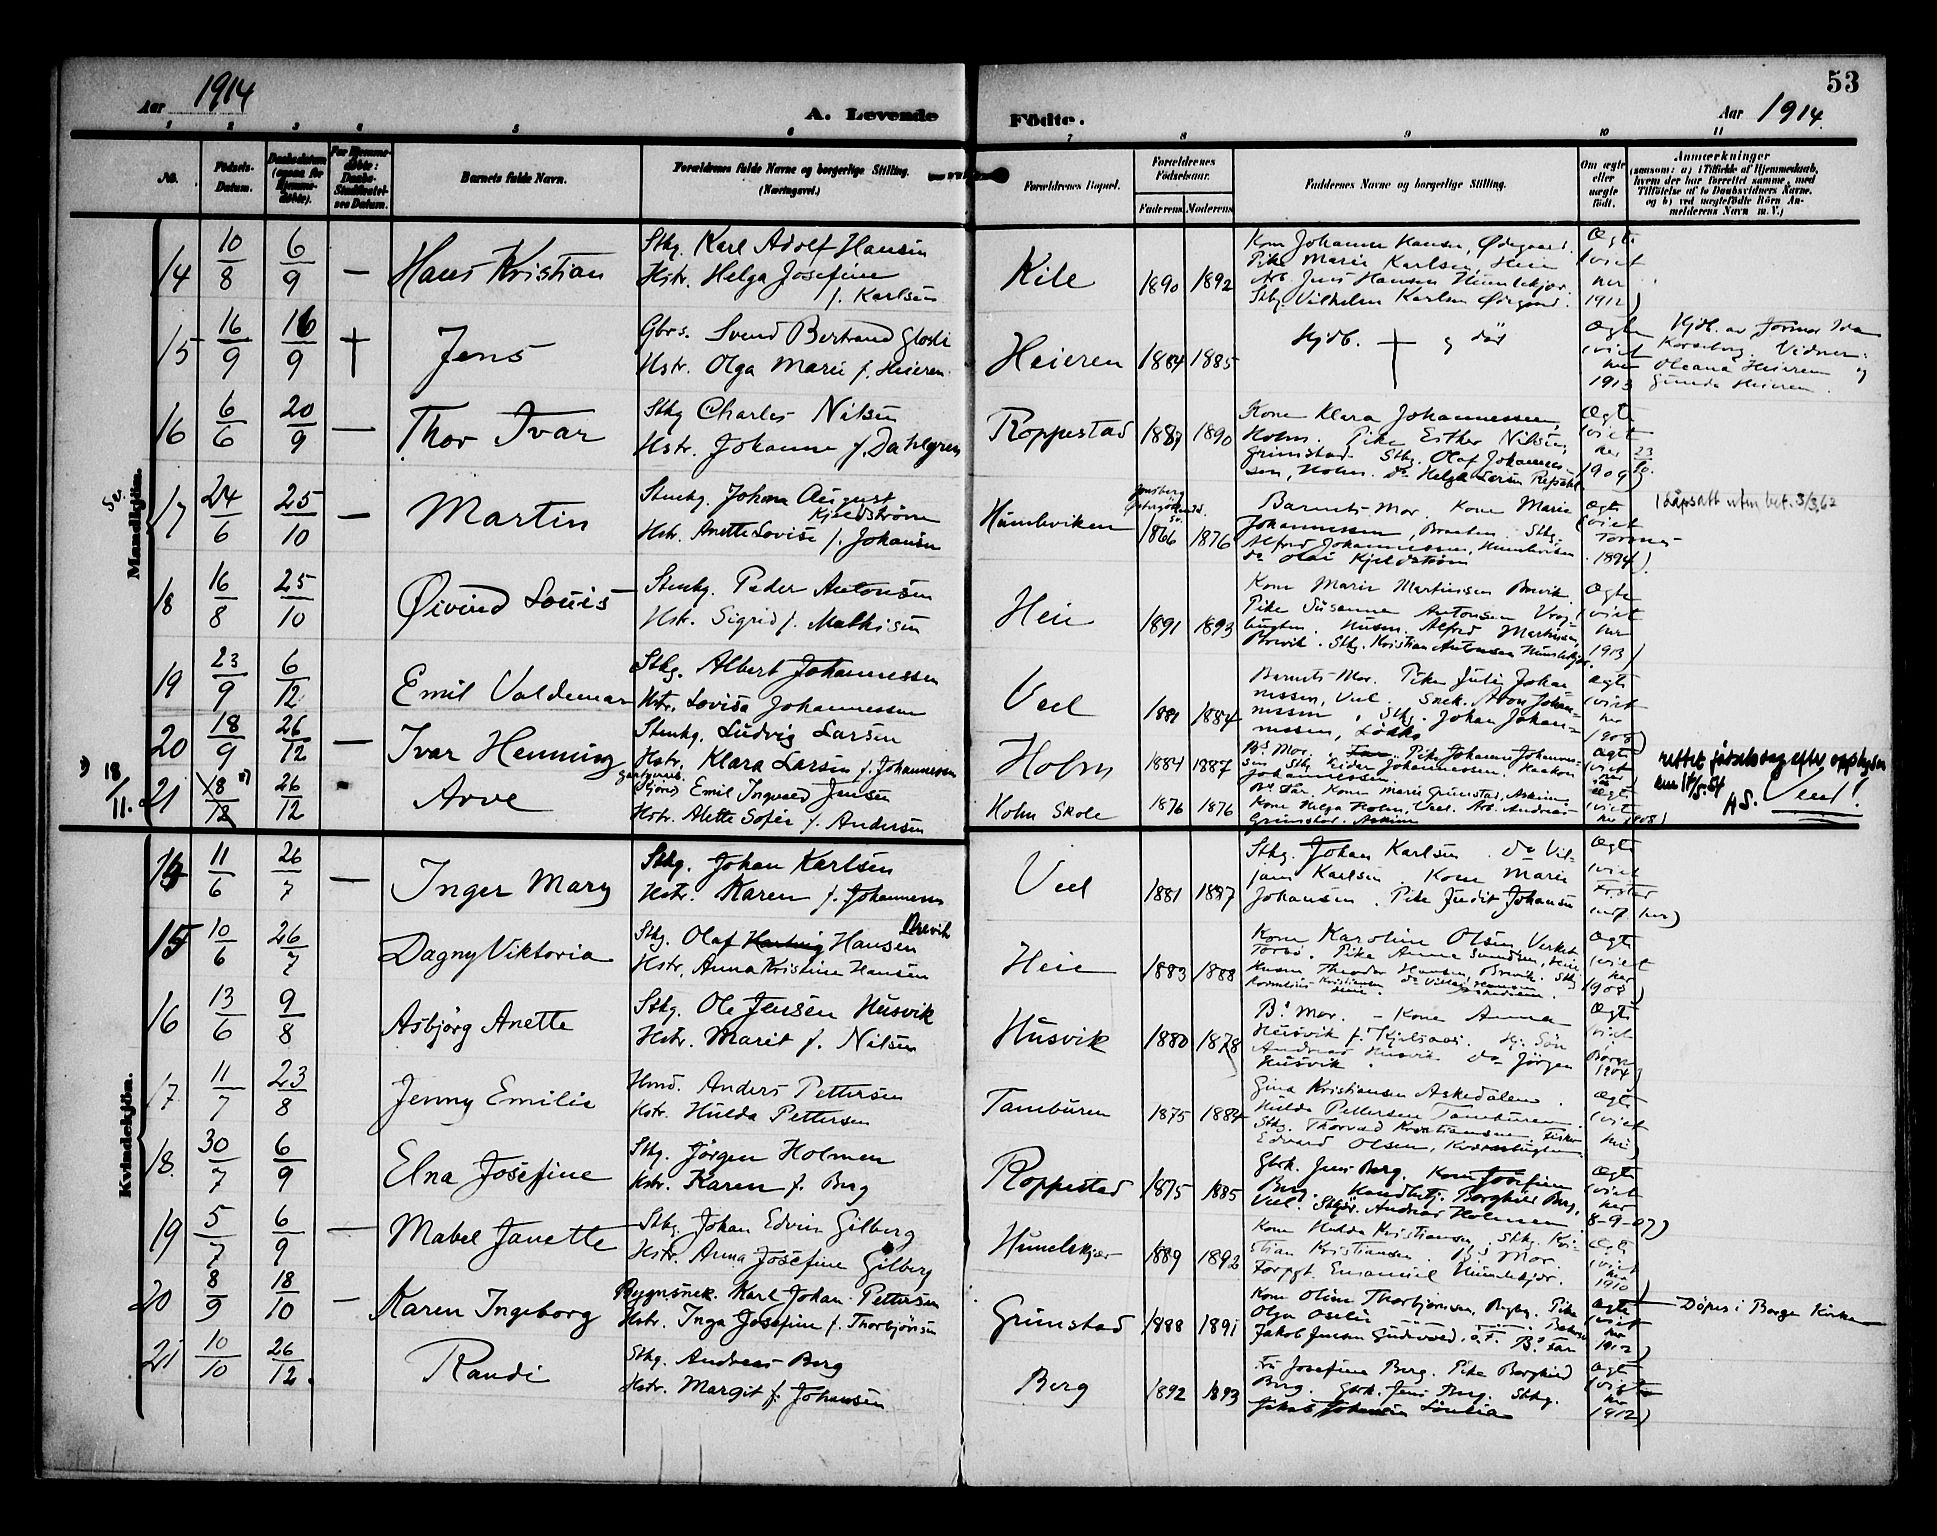 53
Aar 1914
A. Levende Födte.
Aar 1914.
1 2 3 4 5 6 7 8 9 10 11
No.
Födsels-Datum.
Daabsdatum (ogsaa for Hjemmedöbte).
For Hjemmedöbte: Daabs-Stadfæstelsens Datum.
Barnets fulde Navn.
Forældrenes fulde Navne og borgerlige Stilling.
(Næringsvei.)
Forældrenes Bopæl.
Forældrenes Födselsaar.
Faderens. Moderens.
Faddernes Navne og borgerlige Stilling.
Om ægte eller uægte født.
Anmærkninger
(saasom: a) i Tilfælde af Hjemmedaab, hvem der har forrettet samme, med Tilföielse af to Daabsvidners Navne, og b) ved uægtefödte Börn Anmelderens Navn m. V.)
Mandkjön.
14 10/8 6/9 — Hans Kristian
Sthg. Karl Adolf Hansen
Hstr. Helga Josefine
f. Karlsen
Kile 1890 1892
Kone Johanne Hansen, Ødegaard.
Pike Marie Karlsen, Heie
Arb. Jens Hansen Hunlekjær.
Sthg. Vilhelm Karlsen Ødegaard.
Ægte
(viet
her
1912)
15 16/9 16/9 † Jens
Gbrs. Svend Bertrand Glosli
Hstr. Olga Marie f. Heieren
Heieren 1884 1885
Hjdb. † og död
Ægte
(viet
her
1913
Hjdb. av Jormor Ida
Korseberg. Vidner:
Oleana Heieren og
Gunda Heieren.
16 6/6 20/9 — Thor Ivar
Sthg Charles Nilsen
Hstr. Johanne f. Dahlgren
Roppestad 1887 1890
Kone Klara Johannessen,
Holm. Pike Esther Nilsen,
Grimstad. Sthg. Olaf Johannes-
sen, Holm. do Helge Larsen
Ægte
(viet
her 23/10.
1909)
Sv.
17 24/6 25/10 — Martin
Stenhg. Johan August
Kjeldström
Hstr. Anette Lovise f. Johansen
Hunleviken 1866 1876
Barnets Mor. Kone Marie
Johannessen, Braaten. Sthg.
Alfred Johannessen, Hunleviken
do Olai Kjeldström
Ægte
(viet
Torsnes
1894).
18 16/8 25/10 Øivind Louis
Stenhg. Peder Antonsen
Hstr. Sigrid f. Mathisen
Heie 1891 1893
Kone Marie Martinsen Brevik,
Pike Susanne Antonsen
Husm. Alfred Martinsen,
Brevik. Sthg. Kristian Antonsen Hunlekjær.
Ægte
(viet
her
1913)
19 23/9 6/12 Emil Valdemar
Sthg. Albert Johannessen
Hstr. Lovisa Johannessen
Veel 1881 1884
Barnets Mor. Pike Julie Johan-
nessen, Veel. Snek. Aron Johan-
nessen, Sthg. Johan Johan-
nessen, Lökke
Ægte
(viet
her
1908)
20 18/9 26/12 — Ivar Henning
Stenhg. Ludvig Larsen
Hstr. Klara Larsen f. Johannessen
Holm 1884 1887
Bs Mor. Pike Johanne Johannes-
sen Sthg. Peder Johannessen, Haakon
Johannessen.
Ægte
(viet
her
*) 18/11. 21 18/12 *) 26/12 Arve
Emil Ingvald Jensen
Hstr. Alette Sofie f. Andersen
Holm Skole 1876 1876
Bs Far. Kone Marie Grimstad, Askim
Kone Helga Holm, Veel. Arb. Andreas
Grimstad. Askim
Ægte
(viet
her 1908)
rettet fødselsdag efter opplysn
Kvindekjön.
14 11/6 26/7 — Inger Mary
Sthg. Johan Karlsen
Hstr. Karen f. Johannessen
Veel 1881 1887
Sthg. Johan Karlsen. do Vil-
Karlsen. Kone Marie
Johansen. Pike Judit Johansen
Ægte
(viet
15 10/6 26/7 Dagny Viktoria
Brevik
Sthg. Olaf Hartvig Hansen
Hstr. Anna Kristine Hansen
Heie 1883 1888
Kone Karoline Olsen, Verket
Torsö. Pike Anna Svendsen, Heie
Husm. Theodor Hansen, Brevik. Sthg
Kornelius Kristiansen
Ægte
(viet
her
1908)
16 13/6 9/8 Asbjörg Anette
Sthg. Ole Jensen Husvik
Hstr. Marit f. Nilsen
Husvik 1880 1878
Bs Mor. — Kone Anna
Husvik f. Kjölsaas. Hj. Sön
Andreas Husvik. do Jörgen
Husvik.
Ægte
(viet
Borge
1904)
17 11/7 23/8 Jenny Emilie
Hmd. Anders Pettersen
Hstr. Hulda Pettersen
Tamburen 1875 1884
Gina Kristiansen Askedalen.
Hulda Pettersen Tamburen.
Sthg. Thorvald Kristiansen
Edvard Olsen,
Ægte
(viet
her)
18. 30/7 6/9 Elna Josefine
Sthg. Jörgen Holmen
Hstr. Karen f. Berg
Roppestad 1875 1885
Gbrk. Jens Berg. Kone Josefine
Berg. Handbetj. Borghild Berg,
Veel. Andreas Holmen
Ægte
(viet
her
8-9-07)
19 5/7 6/9 — Mabel Janette
Sthg Johan Edvin Gilberg
Hstr. Anna Josefine Gilberg
Hunlekjær 1889 1892
Kone Hulda Kristiansen, Sthg. Kri-
stian Kristiansen Bs Mor.
Forpgt. Emanuel Hunlekjær.
Ægte
(viet
her
1910)
20 8/9 18/10 — Karen Ingeborg
Bygnsnek. Karl Johan Pettersen
Hstr. Inga Josefine f. Thorbjörnsen
Grimstad 1888 1891
Kone Oline Thorbjörnsen, Pike
Olga Oselie
Jakob Jensen Gudevold, Bs Far
Ægte
(viet
her
1912)
Döpes i Borge Kirke
21 10/10 26/12. Randi
Sthg. Andreas Berg
Hstr. Margit f. Johansen
Berg 1892 1893
Fru Josefine Berg. Pike Borghild
Berg. Gbrk. Jens Berg. Sthg.
Jakob Johansen
Ægte
(viet
her
1912)